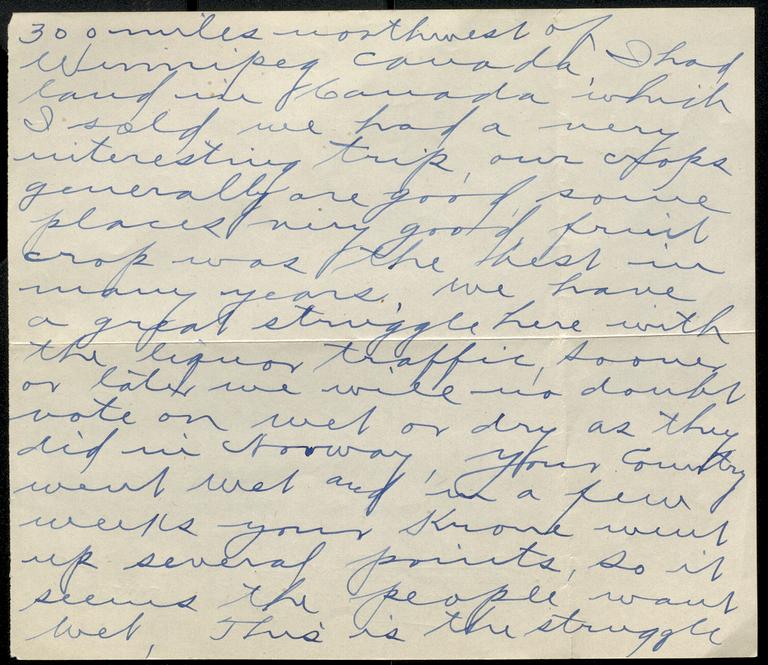 300 miles northwest of
Winnipeg Canada I had
land in Canada which
I sold we had a very
interesting trip, our crops
generally are good, some
places very good, fruit
crop was the best in
many years, we have
a great struggle here with
the liquor traffic, sooner
or later we will no doubt
vote on wet or dry as they
did in Norway, your Country
went wet and in a few
weeks your Krone went
up several points, so it
seems the people want
wet, This is the struggle